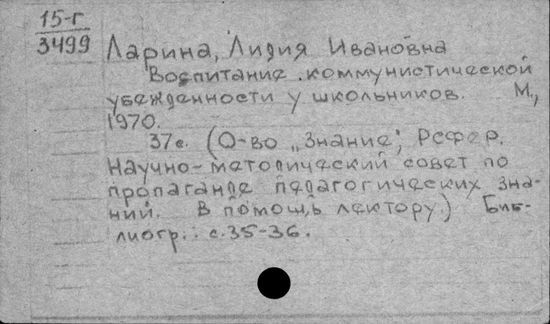 15-г
3499
Ларина, Лидия Ивановна
Воспитание коммунистической
убежденности у школьников. М.,
1970.
37с. (О-во „Знание", РСФСР.
Научно-методический совет по
пропаганде педагогических зна-
ний. В помощь лектору.) Биб-
лиогр.: с. 35-36.